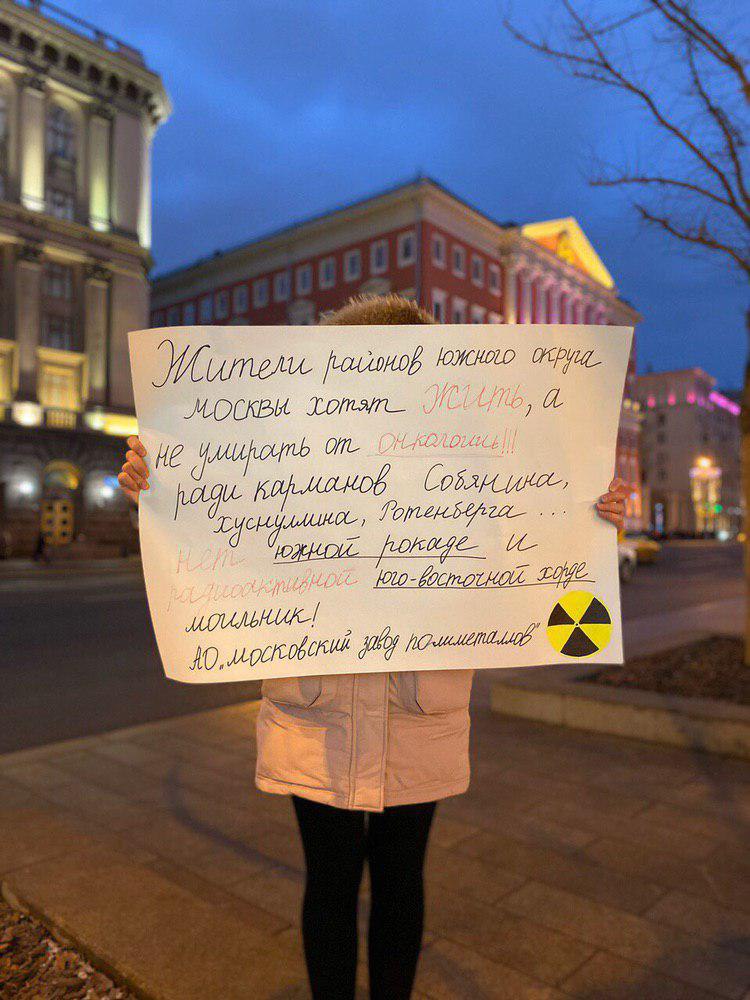 Жители районов южного округа
москвы хотят ЖИТЬ, а
не умирать от онкологии!!!
ради карманов Собянина,
хуснуллина, Ротенберга ...
нет южной рокаде и
радиоактивной юго-восточной хорде
могильник!
АО "московский завод полиметаллов"